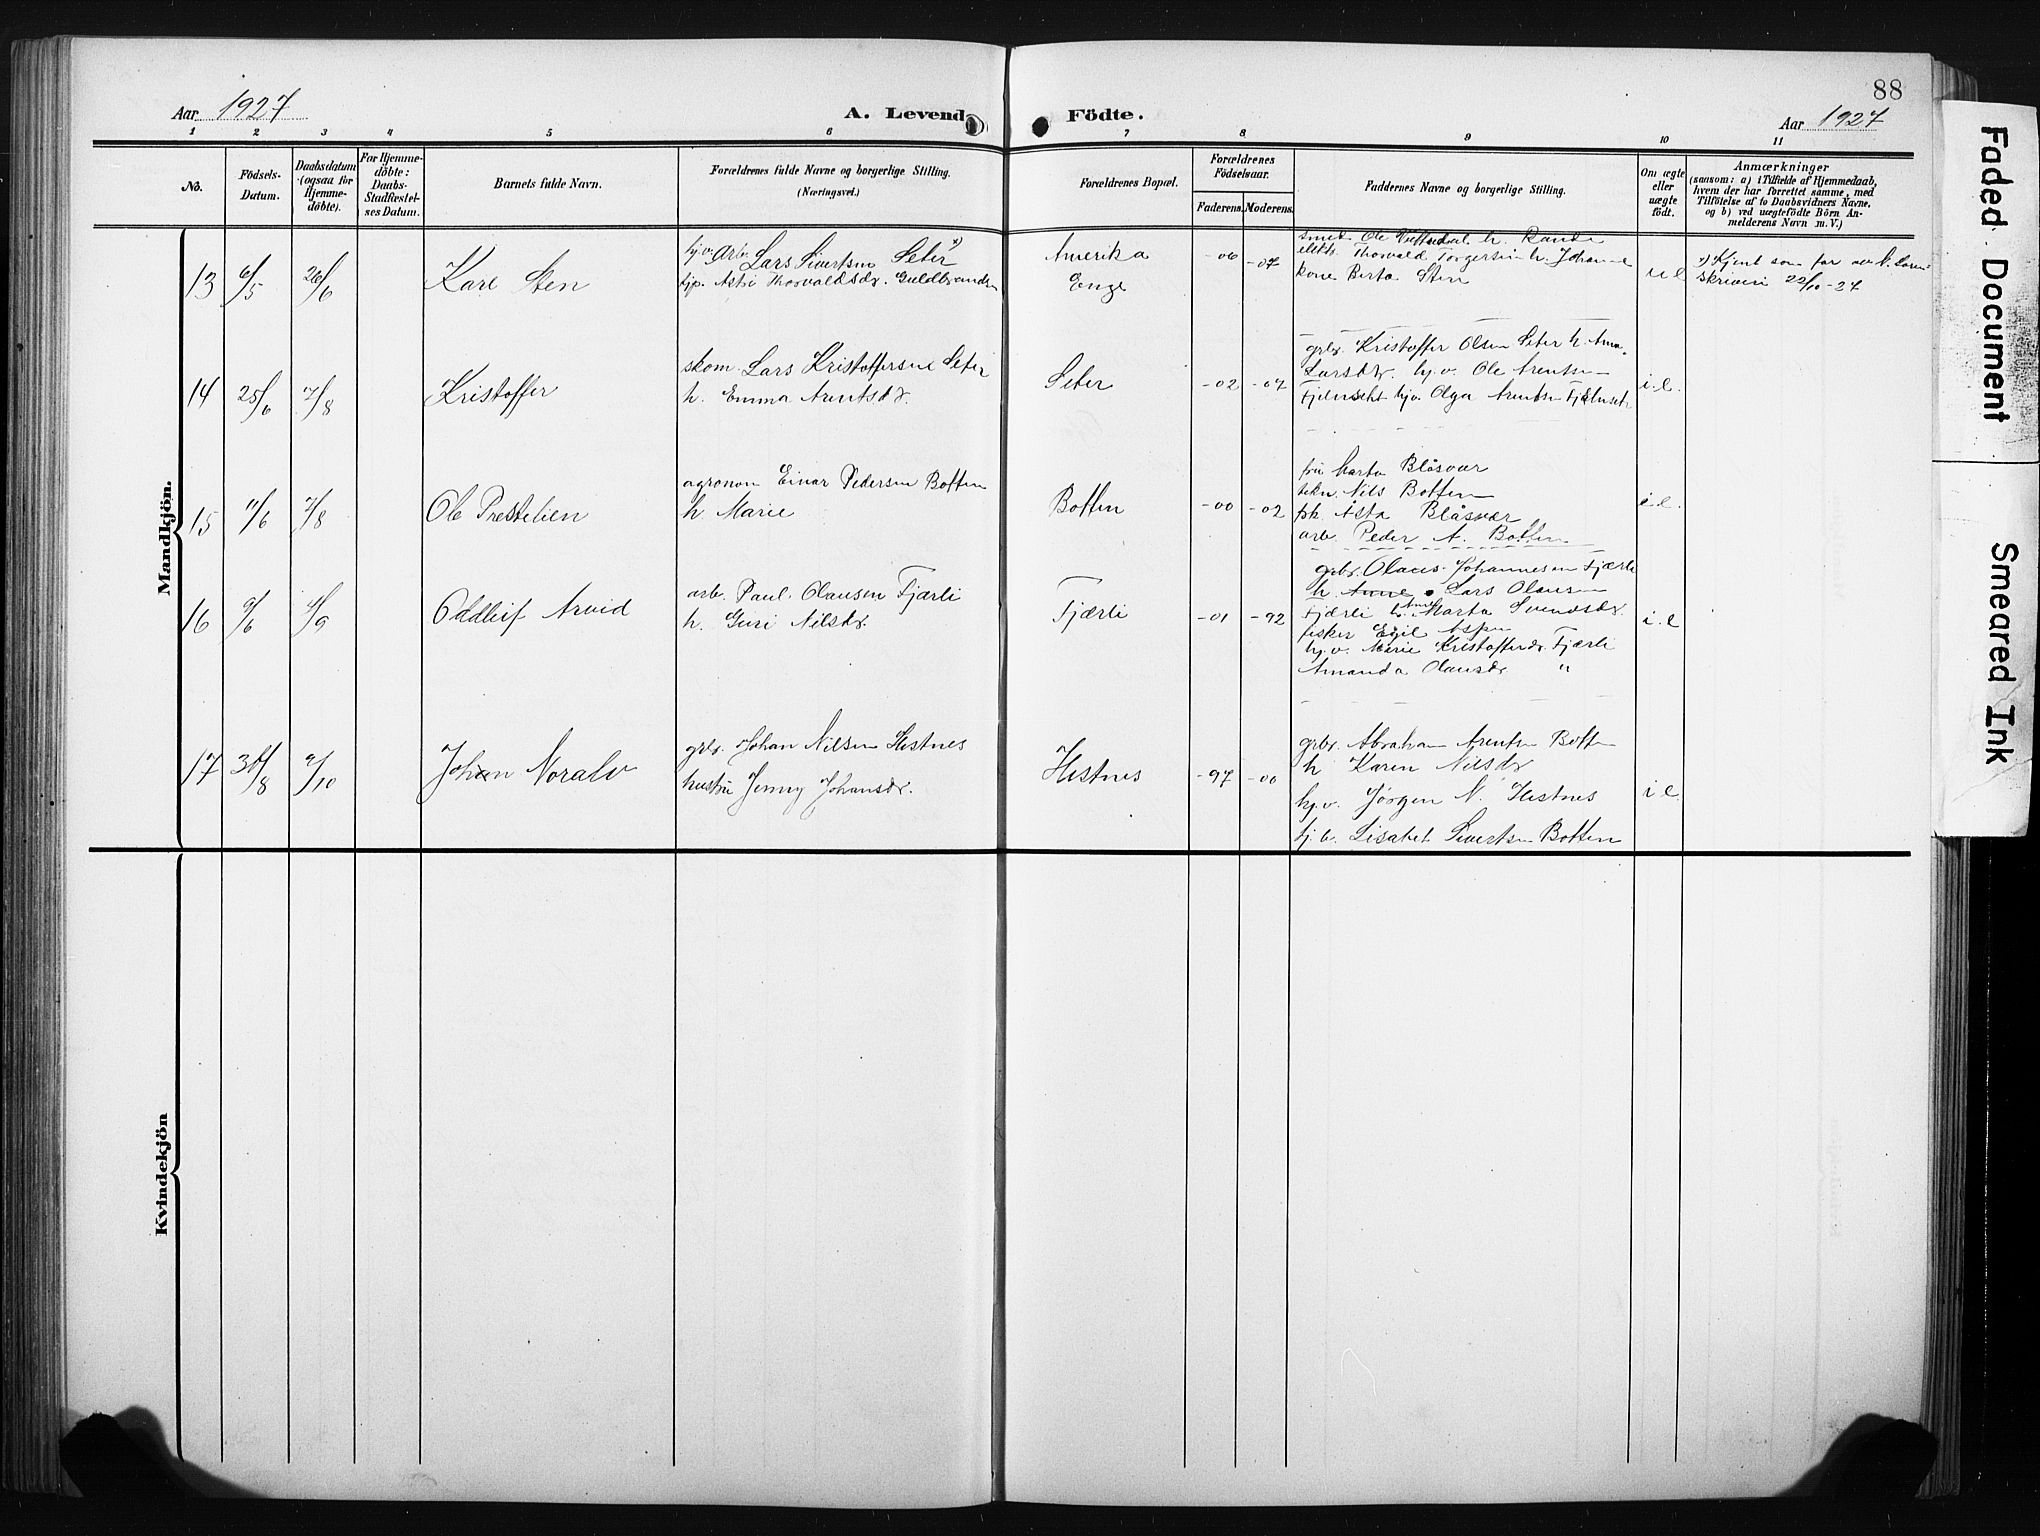 88
Aar 1927
A. Levende Födte.
Aar 1927
1 2 3 4 5 6 7 8 9 10 11
No.
Födsels-
Datum.
Daabsdatum
(ogsaa for
Hjemme-
döbte).
For Hjemme-
döbte:
Daabs-
Stadfæstel-
ses Datum.
Barnets fulde Navn.
Forældrenes fulde Navne og borgerlige Stilling.
(Næringsvei.)
Forældrenes Bopæl.
Forældrenes
Födselsaar.
Faderens. Moderens.
Faddernes Navne og borgerlige Stilling.
Om ægte
eller
uægte
födt.
Anmærkninger
(saasom: a) i Tilfælde af Hjemmedaab,
hvem der har forrettet samme, med
Tilföielse af to Daabsvidners Navne,
og b) ved uægtefödte Börn An-
melderens Navn m. V.)
Mandkjön.
13 6/5 26/6 Kare Sten
Arb. Lars Sivertsen Seter x)
tjp. Astri Thorvaldsdr. Guldbrandsen
Amerika
Enge
-06 -07
smed Ole h. Randi
elektr. Thorvald Torgersen h. Johanne
kone Berta Sten
u e
x) Kjent som far av
skriveri 22/10-27
14 25/6 7/8 Kristoffer
skom. Lars Kristoffersen Seter
h. Emma Arentsdr.
Seter
-02 -07
grbr. Kristoffer Olsen Seter h. Anna
Larsdr. hj.v. Ole Arentsen
Fjelnset hjv. Olga Arentsen Fjelnset
i.e.
15 11/6 7/8 Ole Prestelien
agronom Einar Pedersen Botten
h. Marie
Botten
-00 -02
fru Marta Blåsvær
tekn. Nils Botten
pk. Asta Blåsvær
arb. Peder A. Botten
i.e.
16 9/6 4/9 Oddleif Arvid
arb. Paul Olausen Fjærli
h. Guri Nilsdr.
Fjærli
-01 -92
grbr. Olaus Johannesen Fjærli
h. Anne Lars Olausen
Fjærli h. Anne Marta Svendsdr.
fisker Egil Aspen
hj.v. Marie Kristoffersdr. Fjærli
Amanda Olausdr. "
i.e
17 30/8 9/10 Johan Noralv
grbr. Johan Nilsen Hestnes
hustru Jenny Johansdr.
Hestnes
-97 -00
grbr. Abraham Arentsen Botten
h Karen Nilsdr
hj.v. Jørgen N. Hestnes
Lisabet Sivertsen Botten
i e.
Kvindekjön
Faded Document
Smeared Ink